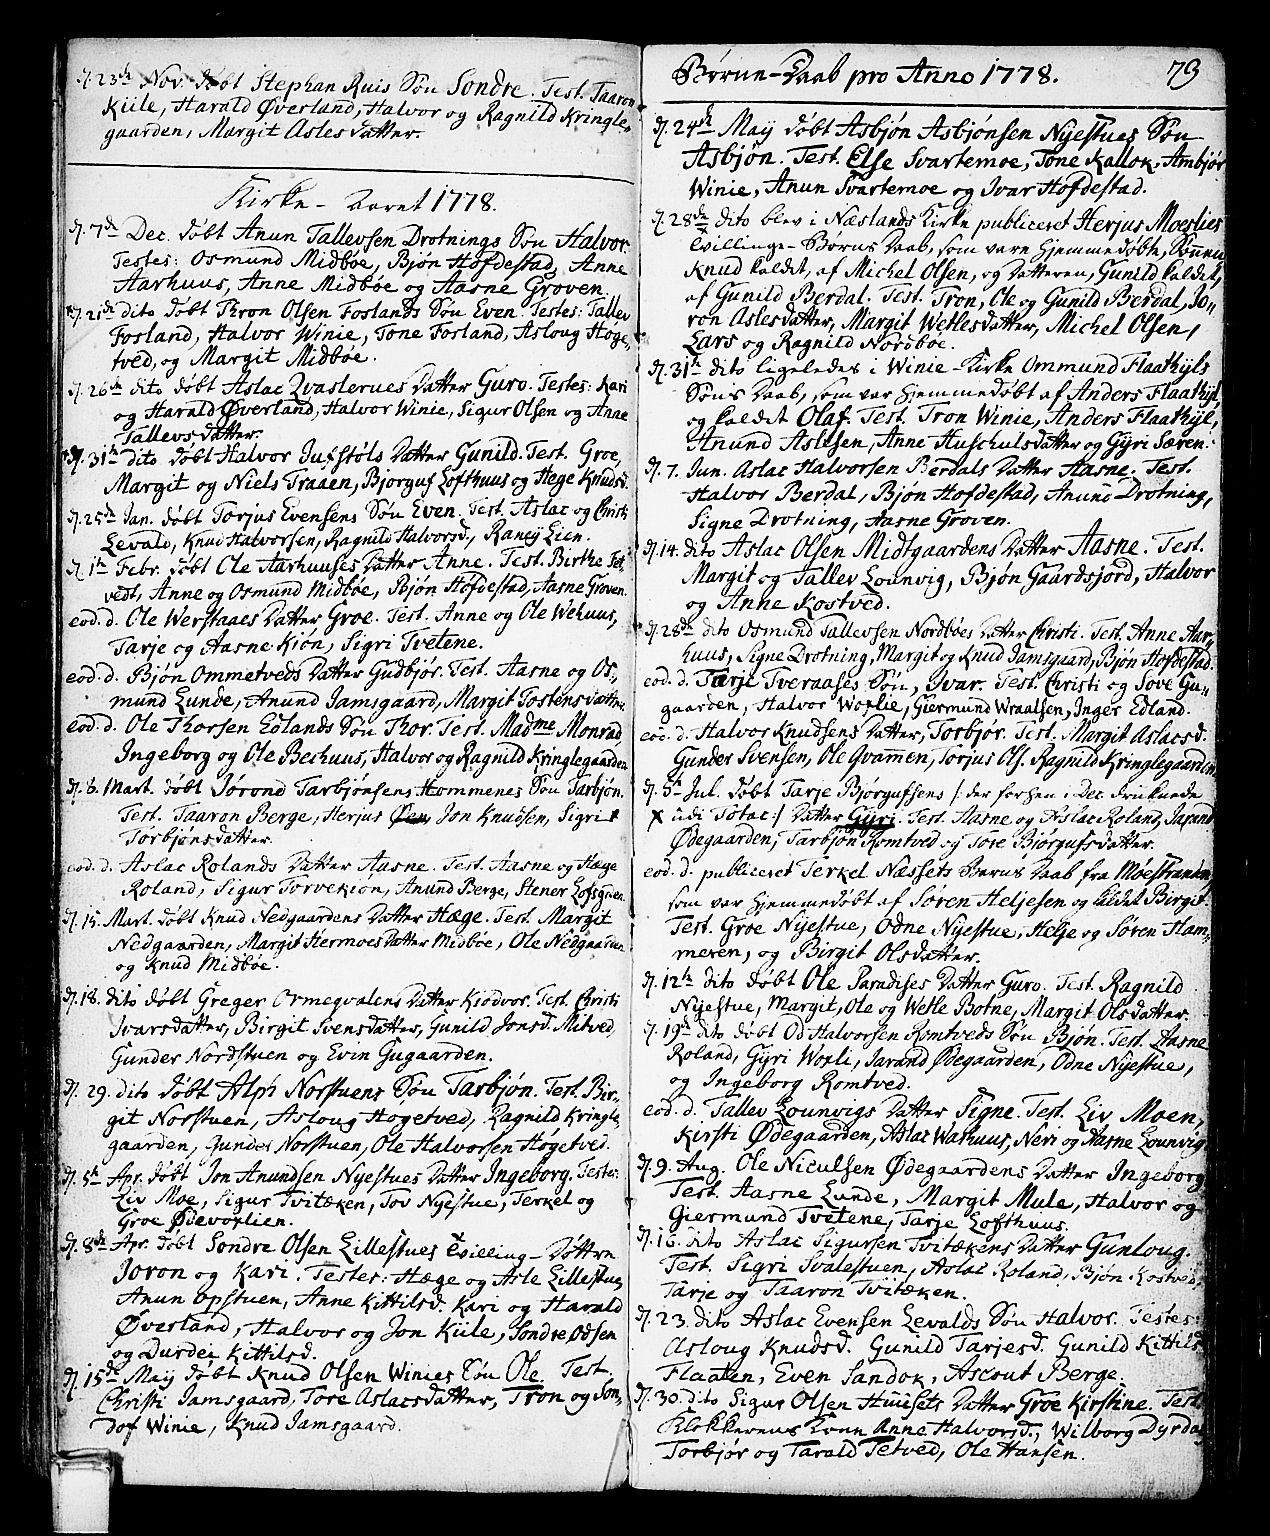 D. 23de Nov. døbt Stephan Ruis Søn Sondre. Test. Taaron
Kiile, Harald Øverland, Halvor og Ragnild Kringle-
gaarden, Margit Aslesdatter.
Kirke-Aaret 1778.
D. 7de Dec. døbt Anun Tallevsen Drotnings Søn Halvor.
Testes: Osmund Midbøe, Bjøn Hofdestad, Anne
Aarhuus, Anne Midbøe og Aasne Groven.
D. 21de dito døbt Thron Olsen Foslands Søn Even. Testes: Tallev
Fosland, Halvor Winie, Tone Forland, Asloug Hoge-
tved, og Margit Midboe.
D. 26de dito døbt Aslac Qvasternes Datter Guro. Testes: Kari
og Harald Øverland, Halvor Winie, Sigur Olsen og Anne
Tallevsdatter.
D. 31te dito døbt Halvor Jufstols Datter Gunild. Test. Groe,
Margit og Niels Traaen, Bjørguf Lofthuus og Hege Knudsd.
D. 25de Jan. døbt Torjus Evensens Søn Even. Test. Aslac og Christi
Levald, Knud Halvorsen, Ragnild Halvorsd., Rancy Lien.
D. 1te Febr. døbt Ole Aarhuuses Datter Anne. Test. Birthe
vedt, Anne og Osmund Midbøe, Bjøn Hofdestad, Aasne Groven.
eod. d. Ole Werstaaes Datter Groe. Test. Anne og Ole Wehuus,
Tarje og Aasne Kiøn, Sigri Tvetene.
eod. d. Bjøn Ommetveds Datter Gudbjør. Test. Aasne og Os-
mund Lunde, Anund Jamsgaard, Margit Tostensdatter.
eod. d. Ole Thorsen Edlands Søn Thor. Test. Madme Monrad,
Ingeborg og Ole Berhuus, Halvor og Ragnild Kringlegaarden
D. 8. Mart. døbt Jørond Tarbjønsens Hommenes Søn Tarbjøn.
Test. Taaron Berge, Herjus Øen, Jon Knudsen, Sigri
Torbjønsdatter.
eod. d. Aslac Rolands Datter Aasne. Test. Aasne og Hæge
Roland, Sigur Torvekiøn, Anund Berge, Stener
D. 15. Mart. døbt Knud Nedgaardens Datter Hæge. Test. Margit
Nedgaarden, Margit HermoesDatter Midbøe, Ole Nedgaarden
og Knud Midbøe.
D. 18. dito døbt Greger Ormegvalens Datter Kiødvor. Test. Christi
Ivarsdatter, Birgit Svensdatter, Gunild Jonsd. Mitved,
Gunder Nordstuen og Evin Gugaarden.
D. 29. dito døbt Alph Norstuens Søn Tarbjøn. Test. Bir-
git Norstuen, Asloug Hogetved, Ragnild Kringle
gaarden, Gunder Norstuen, Ole Halvorsen Høgetved.
D. 5te Apr. døbt Jon Anundsen Nyestues Datter Ingeborg. Testes:
Liv Moe, Sigur Tvitæken, Tov Nyestue, Terkel og
Groe Ødevorlien.
D. 8de Apr. døbt Sondre Olsen Lillestues Tvilling-Døttre
Joron og Kari. Testes: Hæge og Asle Lillestue
Anun Opstuen, Anne Kittilsd. Kari og Harald
Øverland, Halvor og Jon Kiile, Sondre Odsen
og Durdei Kittilsd.
D. 15de May døbt Knud Olsen Winies Søn Ole. Test.
Christi Jamsgaard, Tore Aslacsdatter, Tron og Son-
dof Winie, Knud Jamsgaard.
Børne-Daab pro Anno 1778. 79
D. 24de May døbt Asbjøn Asbjønsen Nyestues Søn
Asbjøn. Test. Else Svartemoe, Tone Kallok, Ambjør
Winie, Anun Svartemoe og Ivar Hofdestad.
D. 28de dito blev i Næslands Kirke publiceret Herjus Moeslies
Tvillinge-Børns Daab, som vare hjemmedøbte, Sønnen
Knud kaldet, af Michel Olsen, og Datteren, Gunild kaldet,
af Gunild Berdal. Test. Tron, Ole og Gunild Berdal, Jo-
ron Aslesdatter, Margit Wetlesdatter, Michel Olsen,
Lars og Ragnild Nordboe.
D. 31te dito ligeledes i Winie-Kirke Ommund Flaathyls
Søns Daab, som var hjemmedøbt af Anders Flaathyl,
og kaldet Olaf. Test. Tron Winie, Anders Flaathyl,
Anund Aslesen, Anne Auschulsdatter og Gyri Særen.
D. 7. Jun. Aslac Halvorsen Berdals Datter Aasne. Test.
Halvor Berdal, Bjøn Hofdestad, Anund Drotning,
Signe Drotning, Aasne Groven.
D. 14. dito Aslac Olsen Midtgaardens Datter Aasne. Test.
Margit og Tallev Lounvig, Bjøn Gaardsjord, Halvor
og Anne Kostved.
D. 28de dito Osmund Tallevsen Nordbøes Datter Christi. Test. Anne Aar-
huus, Signe Drotning, Margit og Knud Jamsgaard, Bjøn Hofdestad.
eod. d. Tarje Tveraases Søn, Ivar. Test. Christi og Tove Gu-
gaarden, Halvor Woxlie, Giermund Wraalsen, Inger Edland.
eod. d. Halvor Knudsens Datter, Torbjør. Test. Margit Aslacsd.
Gunder Svensen, Ole Qvammen, Torjus Ols. Ragnild Kringlegaarden
D. 5te Jul. døbt Tarje Bjørgufsens /: der forhen i Dec. druknede
X udi Totac:/ Datter Gyri. Test. Aasne og Aslac Roland, Jarand
Ødegaarden, Tarbjøn Romtved og Tore Bjørgufsdatter.
eod. d. publiceret Terkel Næssets Barns Daab fra Moestranden,
som var hjemmedøbt af Søren Heljesen og kaldet Birgit.
Test. Groe Nyestue, Odne Nyestue, Helje og Søren Ham-
meren, og Birgit Olsdatter.
D. 12te dito døbt Ole Paradises Datter Guro. Test. Ragnild
Nyestue, Margit, Ole og Wetle Botne, Margit Olsdatter.
D. 19de dito døbt Od Halvorsen Romtveds Søn Bjøn. Test. Aasne
Roland, Gyri Woxli, Jarand Ødegaarden, Odne Nyestue,
og Ingeborg Romtved.
eod. d. Tallev Lounvigs Datter Signe. Test. Liv Moen,
Kirsti Ødegaarden, Aslac Warhuus, Neri og Aasne Lounvig.
D. 9. Aug. Ole Niculsen Ødegaardens Datter Ingeborg
Test. Aasne Lunde, Margit Mule, Halvor og
Giermund Tvetene, Tarje Lofthuus.
D. 16. dito Aslac Sigursen Tvitækens Datter Gunloug.
Test. Sigri Svalestuen, Aslac Roland, Bjøn Kostved,
Tarje og Taaron Tvitæken.
D. 23. dito Aslac Evensen Levalds Søn Halvor. Testes:
Asloug Knudsd. Gunild Tarjesd. Gunild Kittilsd
Flaaten, Even Sandok, Ascout Berge.
D. 30. dito Sigur Olsen Huusets Datter Groe Kirstine. Test.
Klokkerens Kone Anne Halvorsd., Wilborg Dyrdal
Torbjør og Tarald Tetved, Ole Hansen.